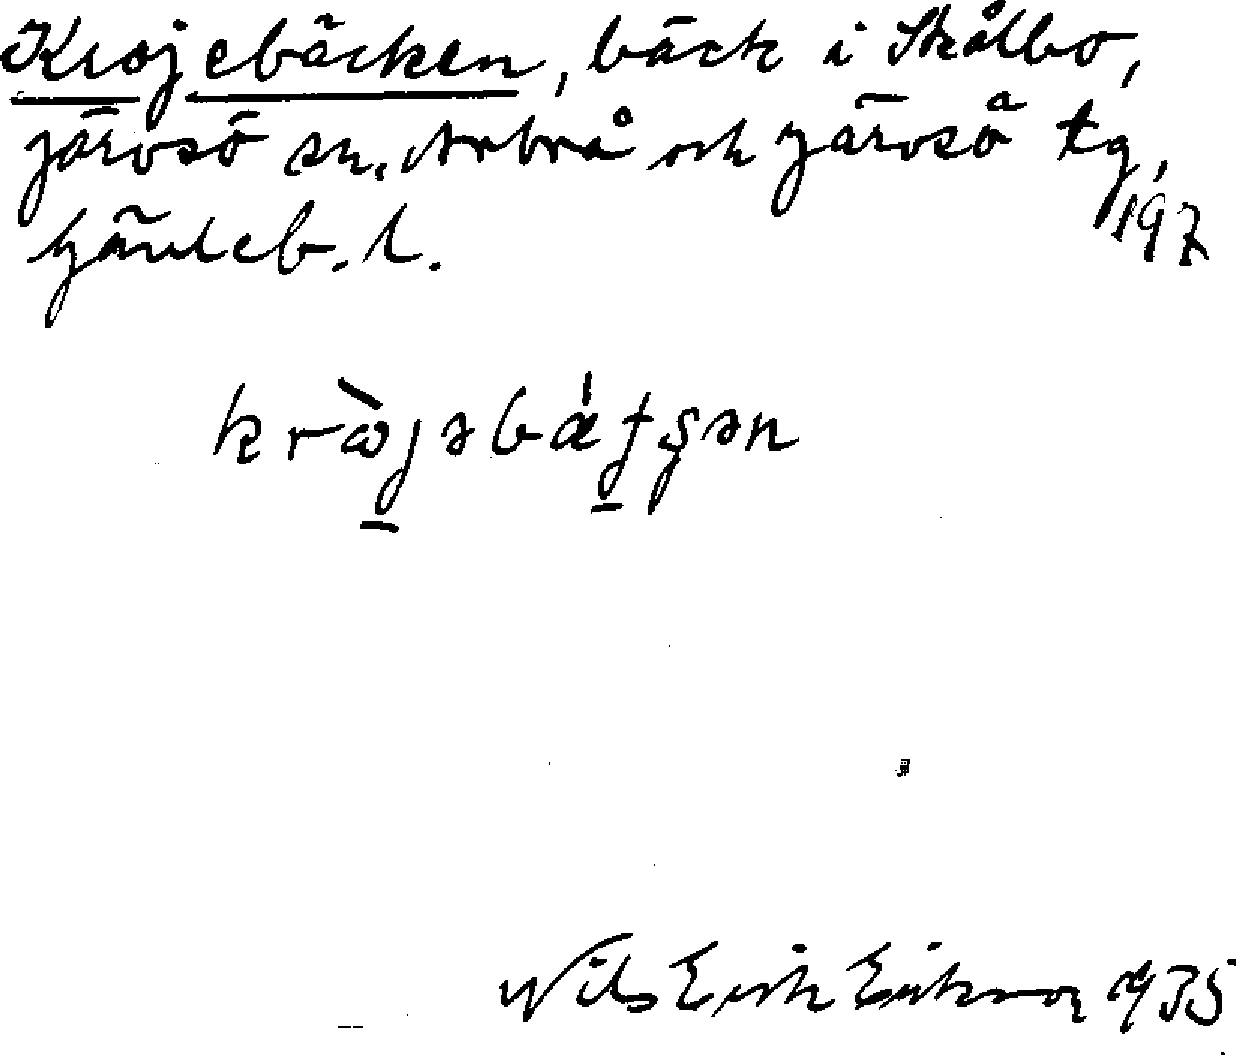 Krojebäcken, bäck i Skålbo,
Järvsö sn. Arbrå och Järvsö tg,
Gävleb. l.
197
krὼjəbǽtʂən
Nils Erik Eriksson 1935